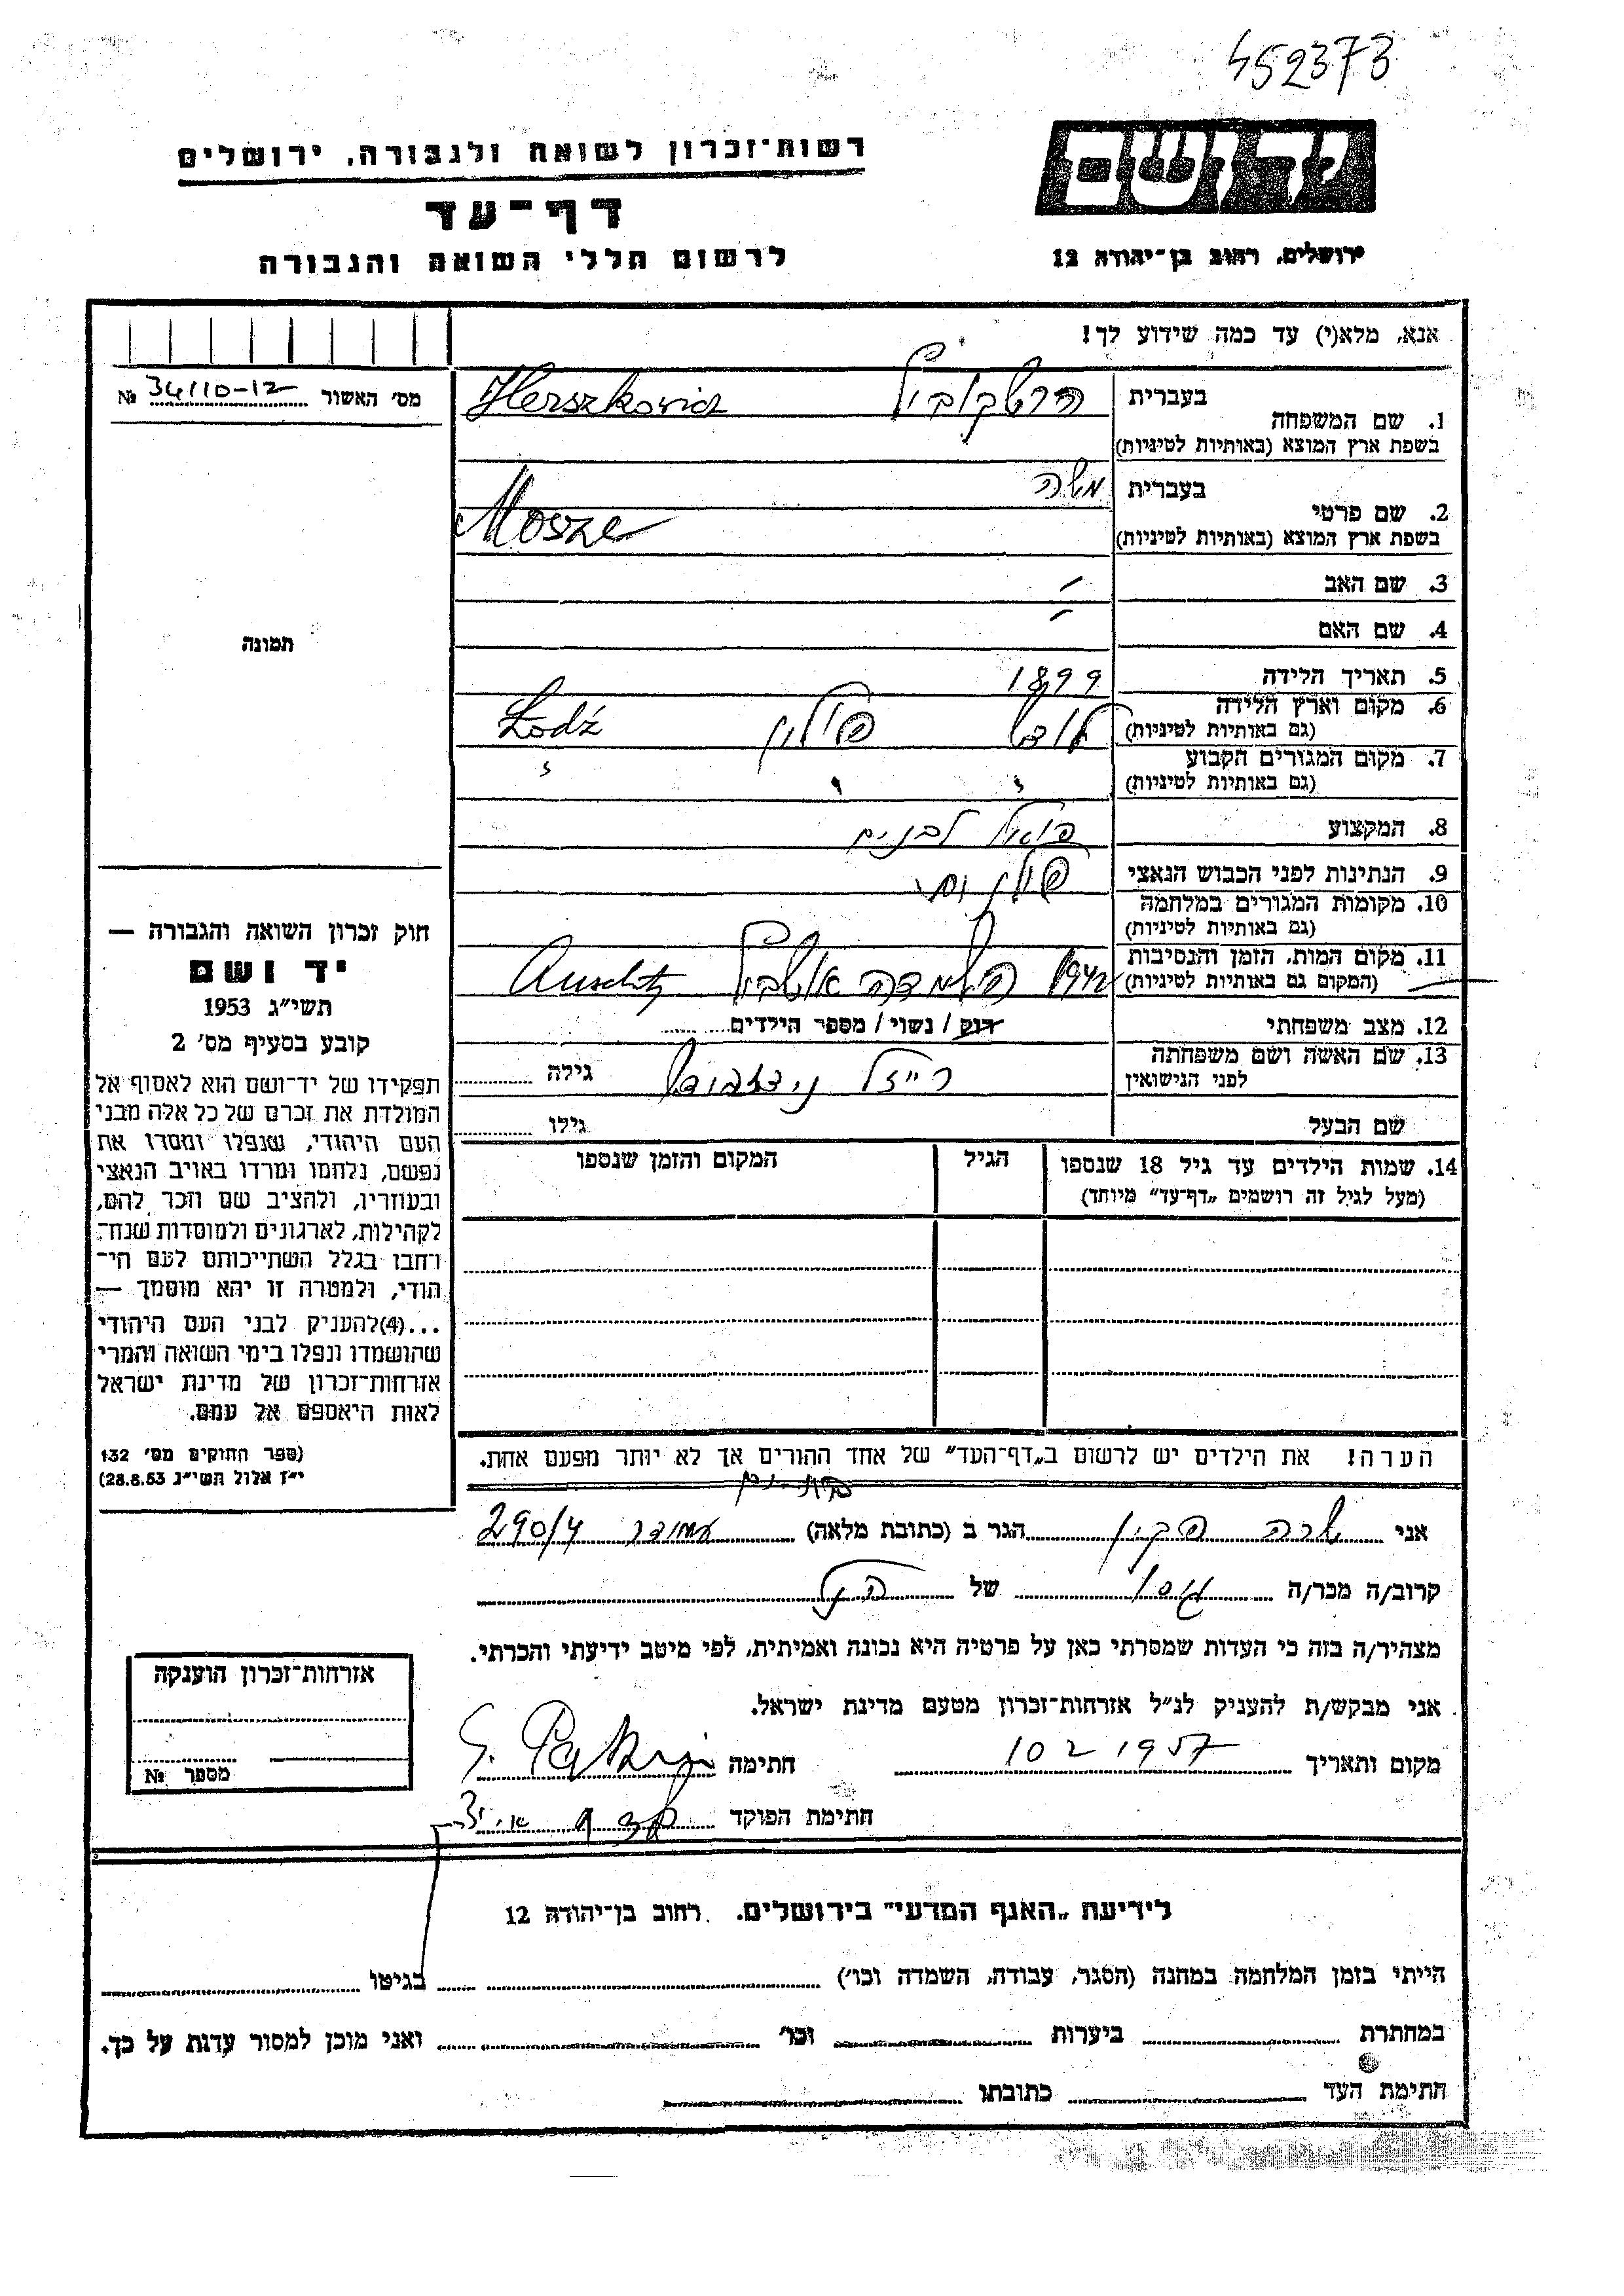 452373
רשות־זכרון לשואה ולגבורה, ירושלים
יד ושם
דף־עד
לרשום חללי השואה והגבורה
ירושלים, רחוב בן־יהודה 12
אנא, מלא(י) עד כמה שידוע לך!
מס' האשור 34/10-12 №
תמונה
1. שם המשפחה
בעברית הרשקוביץ Herszkovicz
בשפת ארץ המוצא (באותיות לטיניות)
2. שם פרטי
בעברית משה
בשפת ארץ המוצא (באותיות לטיניות) Mosze
3. שם האב -
4. שם האם -
5. תאריך הלידה 1899
6. מקום וארץ הלידה לודז' פולין Łodź
(גם באותיות לטיניות)
7. מקום המגורים הקבוע " " "
(גם באותיות לטיניות)
8. המקצוע פועל לבנים
9. הנתינות לפני הכבוש הנאצי
10. מקומות המגורים במלחמה
(גם באותיות לטיניות)
11. מקום המות, הזמן והנסיבות 1942 השמדה אושביץ
(המקום גם באותיות לטיניות)
12. מצב משפחתי רוק / נשוי / מספר הילדים
13. שם האשה ושם משפחתה רייזל גילה
לפני הנישואין
שם הבעל גילו
14. שמות הילדים עד גיל 18 שנספו הגיל המקום והזמן שנספו
(מעל לגיל זה רושמים „דף־עד" מיוחד)
הערה! את הילדים יש לרשום ב„דף־העד" של אחד ההורים אך לא יותר מפעם אחת.
חוק זכרון השואה והגבורה —
יד ושם
תשי"ג 1953
קובע בסעיף מס' 2
תפקידו של יד־ושם הוא לאסוף אל
המולדת את זכרם של כל אלה מבני
העם היהודי, שנפלו ומסרו את
נפשם, נלחמו ומרדו באויב הנאצי
ובעוזריו, ולהציב שם וזכר להם,
לקהילות, לארגונים ולמוסדות שנח־
רחבו בגלל השתייכותם לעם הי־
הודי, ולמטרה זו יהא מוסמך —
...(4)להעניק לבני העם היהודי
שהושמדו ונפלו בימי השואה והמרי
אזרחות־זכרון של מדינת ישראל
לאות היאספם אל עמם.
(ספר החוקים מס' 132
י"ז אלול תשי"ג 28.8.53)
בת-ים
אני שרה פקין הגר ב (כתובת מלאה) עמידר 290/4
קרוב/ה מכר/ה של הנ"ל
מצהיר/ה בזה כי העדות שמסרתי כאן על פרטיה היא נכונה ואמיתית, לפי מיטב ידיעתי והכרתי.
אני מבקש/ת להעניק לנ"ל אזרחות־זכרון מטעם מדינת ישראל.
מקום ותאריך 10 2 1957 חתימה
חתימת הפוקד
אזרחות־זכרון הוענקה
מספר №
לידיעת „האגף המדעי" בירושלים. רחוב בן־יהודה 12
הייתי בזמן המלחמה במחנה (הסגר, עבודה, השמדה וכו') בגיטו
במחתרת ביערות וכו' ואני מוכן למסור עדות על כך.
חתימת העד כתובתו